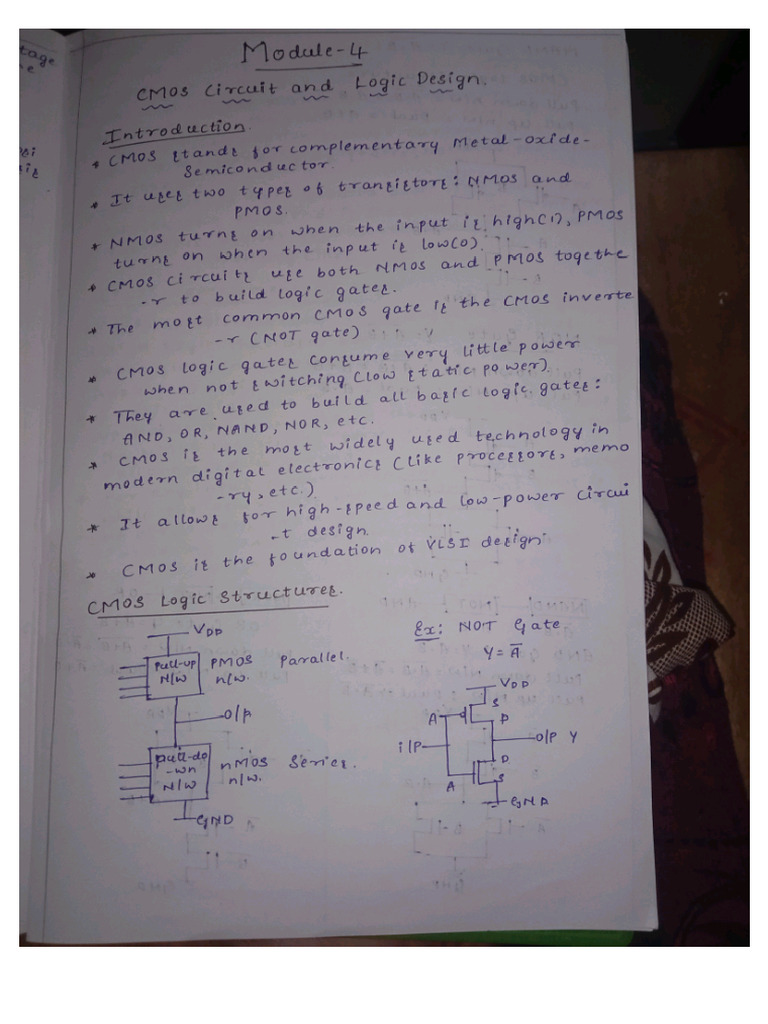 tage
Module-4
CMOS Circuit and Logic Design.
Introduction.
* CMOS stands for complementary Metal-oxide-
Semiconductor.
* It uses two types of transistors: NMOS and
PMOS.
* NMOS turns on when the input is high(1), PMOS
turns on when the input is low(0).
* CMOS circuits use both NMOS and PMOS togethe
-r to build logic gates.
* The most common CMOS gate is the CMOS inverte
-r (NOT gate)
* CMOS logic gates consume very little power
when not switching (low static power).
* They are used to build all basic logic gates:
AND, OR, NAND, NOR, etc.
* CMOS is the most widely used technology in
modern digital electronics (like processors, memo
-ry, etc.)
* It allows for high-speed and low-power circui
-t design.
* CMOS is the foundation of VLSI design
CMOS Logic Structures.
VDD
Pull-up
N/W
PMOS Parallel.
n/w.
O/P
Pull-do
-wn
N/W
nMOS Series.
n/w.
GND
Ex: NOT Gate.
Y = A̅
VDD
S
A
D
i/P
O/P Y
D
A
S
GND